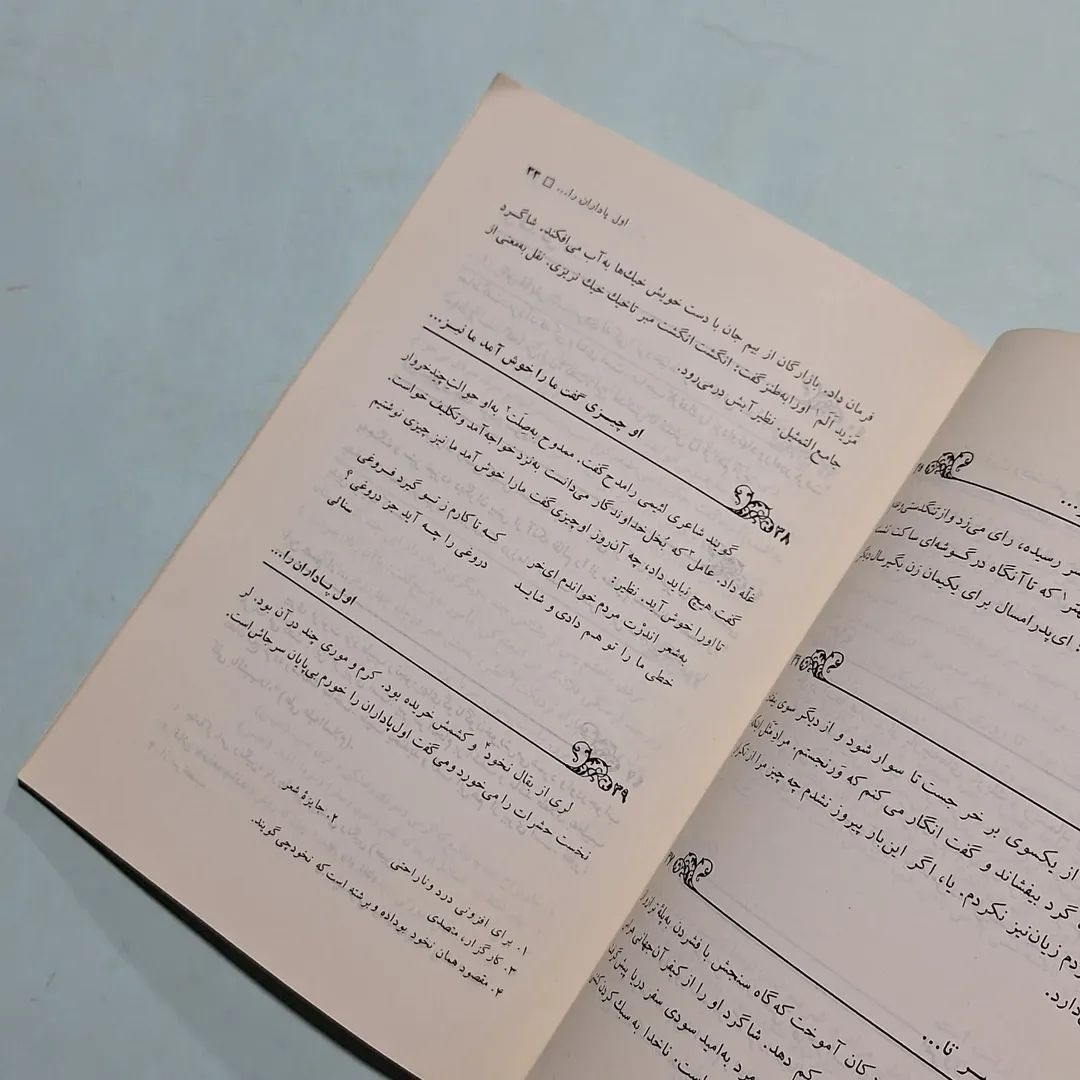 اول پاداران را... □ ۲۳
فرمان داد. بازارگان از بیم جان با دست خویش خیك‌ها به آب می‌افکند. شاگرد
مزید اَلَم۱ او را به‌طنز گفت: انگشت انگشت مبر تا خیك خیك نریزی. نقل به‌معنی از
جامع التمثیل. نظیر آبش در می‌رود.
۳۸
او چیزی گفت ما را خوش آمد ما نیز...
گویند شاعری لئیمی را مدح گفت. ممدوح به‌صلت۲ به‌او حوالت چند خروار
غلّه داد. عامل۳ که بُخل خداوندگار می‌دانست به‌نزد خواجه آمد و تکلیف خواست.
گفت هیچ نباید داد، چه آن‌روز او چیزی گفت ما را خوش آمد ما نیز چیزی نوشتیم
تا او را خوش آید. نظیر:
به‌شعر اندرْت مردم خواندم ای‌خر که تا کارم ز تو گیرد فروغی
خطی ما را تو هم دادی و شاید دروغی را چه آید جز دروغی؟
سنائی
۳۹
اول پاداران را...
لری از بقال نخود۴ و کشمش خریده بود. کرم و موری چند در آن بود. لر
نخست حشرات را می‌خورد و می گفت اول‌پاداران را خورم بی‌پایان سر جاش‌است.
۱. برای افزونی درد و ناراحتی ۲. جایزهٔ شعر.
۳. کارگزار، متصدی
۴. مقصود همان نخود بوداده و برشته است که نخودچی گویند.
سر رسیده، رای می‌زد و از تنگدستی
که تا آنگاه در گوشه‌ای ساکت
ای پدر امسال برای یکیمان زن بگیر سال دیگر
از یکسوی بر خر جست تا سوار شود و از دیگر سوی
گرد بیفشاند و گفت انگار می کنم که وَر نجستم. مراد
زیان نیز نکردم. یا، اگر این‌بار پیروز نشدم چه چیز مرا از
دارد.
تا...
کان آموخت که گاه سنجش با فشردن به‌پلهٔ ترازو
کم دهد. شاگرد او را از کیفر آن‌جهانی
مرد به‌امید سودی سفر دریا پیش
است. ناخدا به سبك کردن